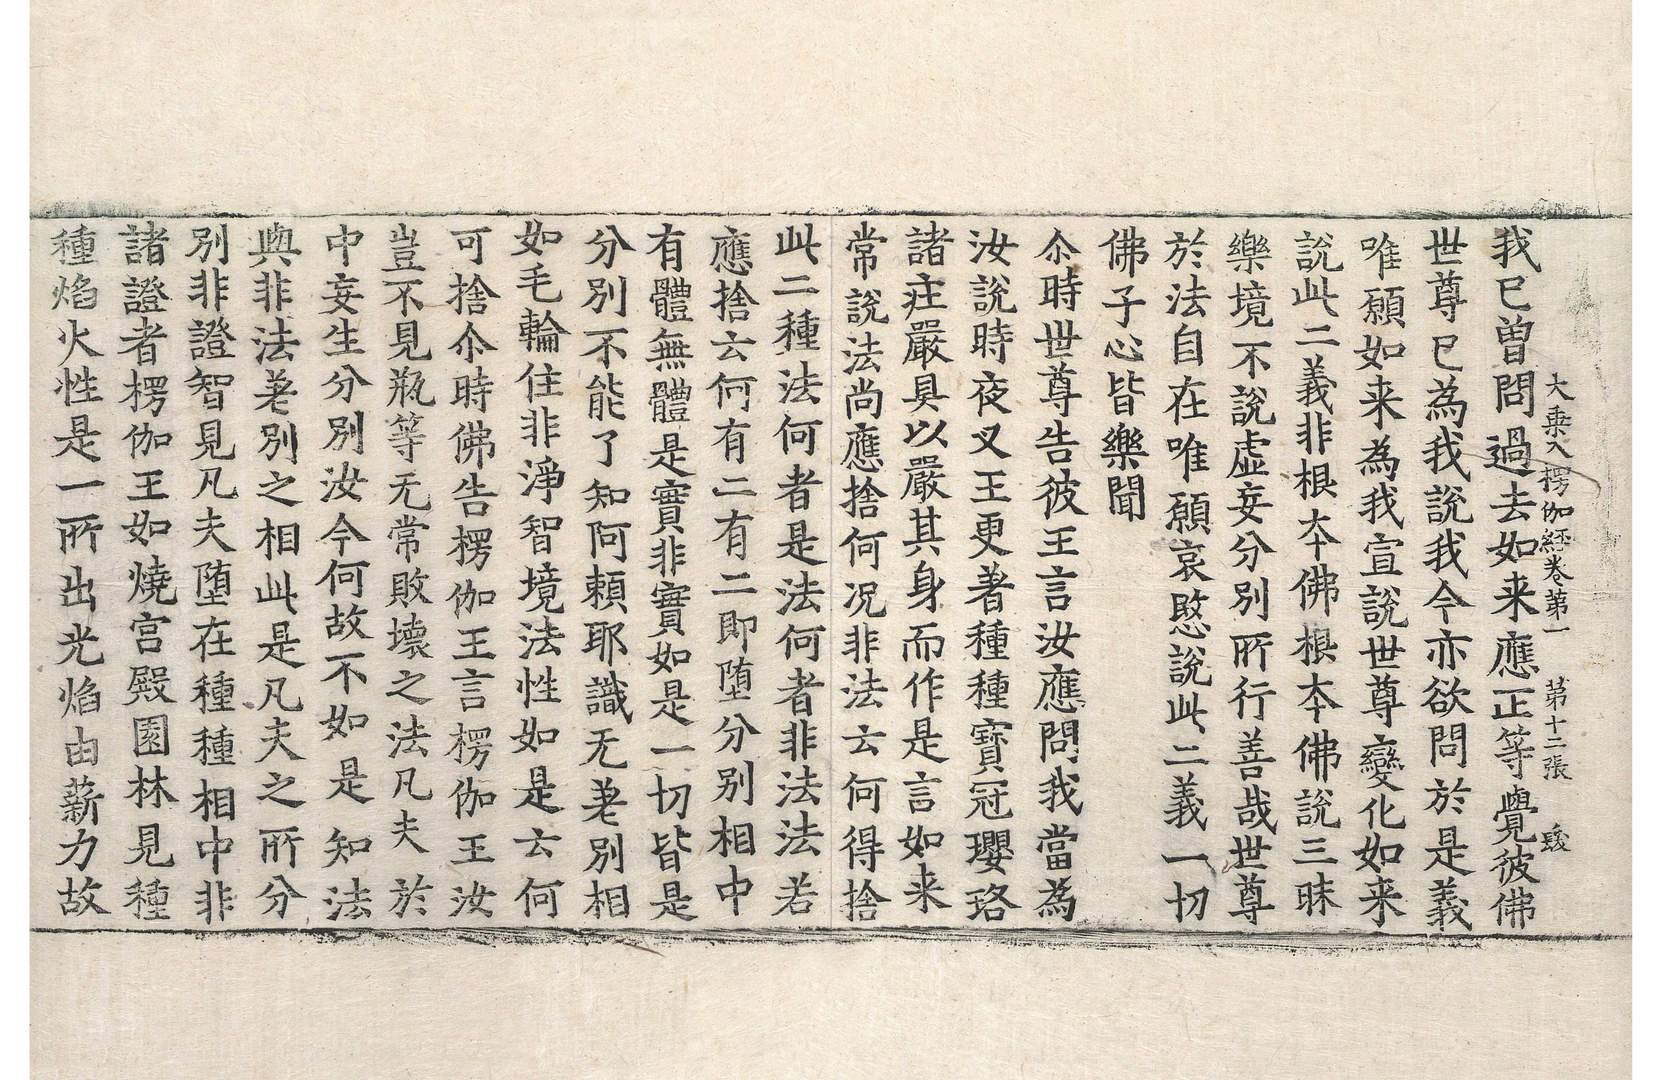 大乗入楞伽経卷第一 第十二張
我已曽問過去如来應正等覺彼佛
世尊已為我說我今亦欲問於是義
唯願如来為我宣說世尊變化如来
說此二義非根夲佛根夲佛說三昧
樂境不說虛妄分別所行善哉世尊
於法自在唯願哀愍說此二義一切
佛子心皆樂聞
尒時世尊告彼王言汝應問我當為
汝說時夜叉王更著種種寶冠瓔珞
諸庄嚴具以嚴其身而作是言如来
常說法尚應捨何况非法云何得捨
此二種法何者是法何者非法法若
應捨云何有二有二即堕分別相中
有體無體是實非實如是一切皆是
分別不能了知阿頼耶識无差別相
如毛輪住非淨智境法性如是云何
可捨尒時佛告楞伽王言楞伽王汝
豈不見瓶等无常敗壞之法凡夫於
中妄生分別汝今何故不如是知法
與非法差別之相此是凡夫之所分
別非證智見凡夫堕在種種相中非
諸證者楞伽王如燒宫殿園林見種
種焰火性是一所出光焰由薪力故